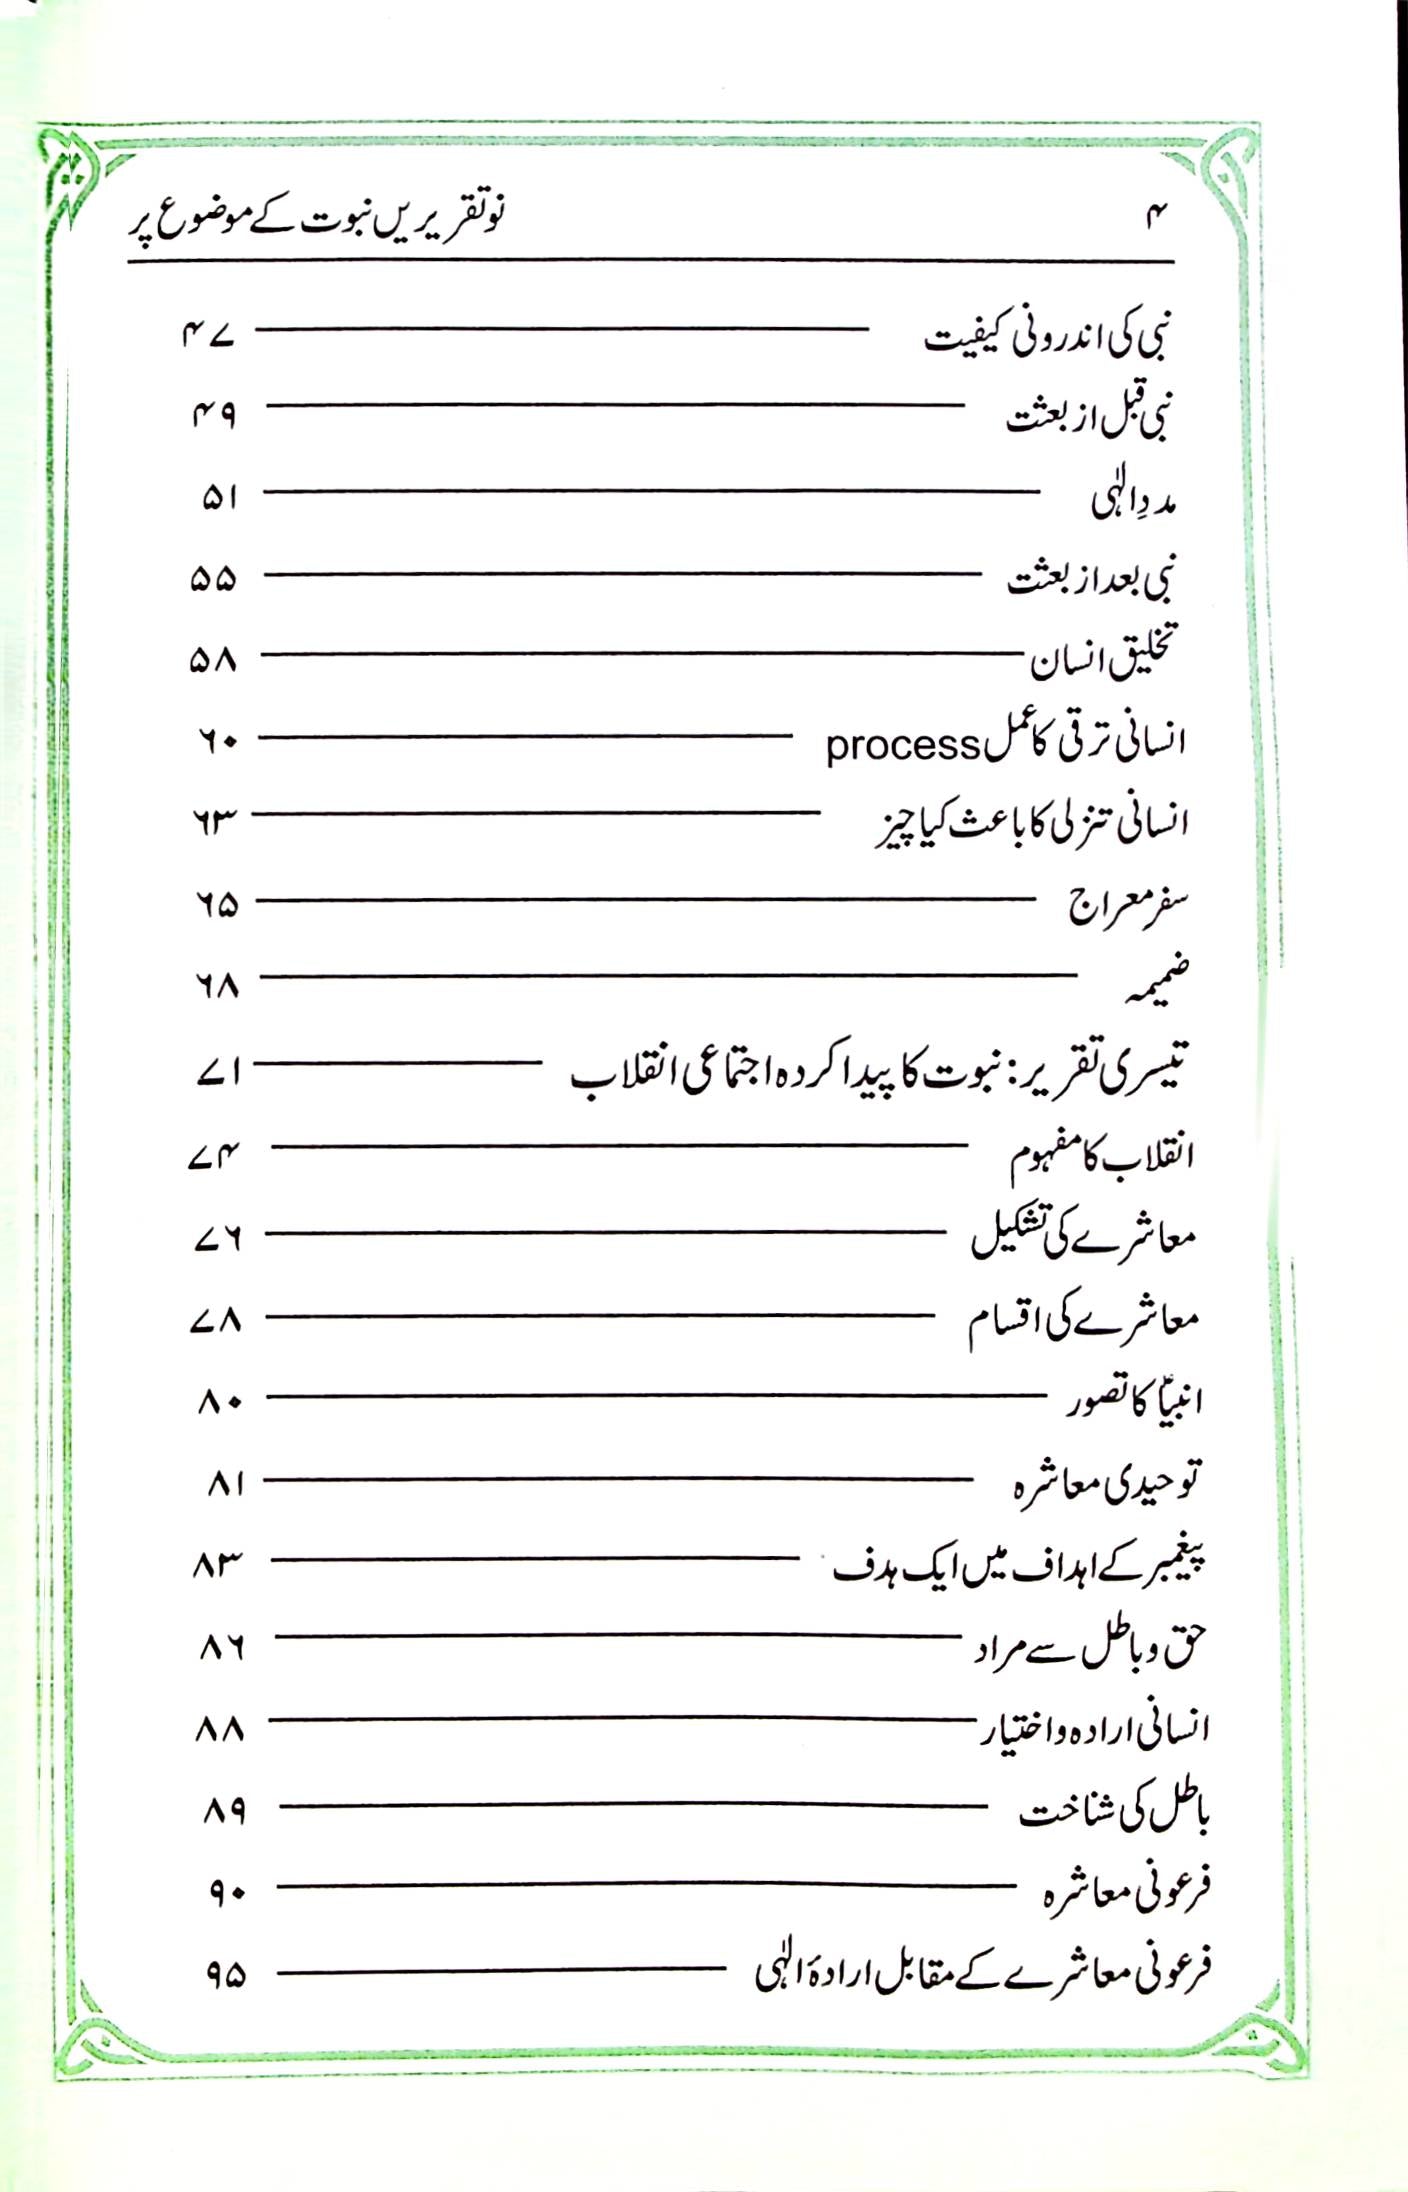 ۴ نو تقریریں نبوت کے موضوع پر
نبی کی اندرونی کیفیت ۴۷
نبی قبل از بعثت ۴۹
مددِ الٰہی ۵۱
نبی بعد از بعثت ۵۵
تخلیق انسان ۵۸
انسانی ترقی کا عمل process ۶۰
انسانی تنزلی کا باعث کیا چیز ۶۳
سفر معراج ۶۵
ضمیمہ ۶۸
تیسری تقریر: نبوت کا پیدا کردہ اجتماعی انقلاب ۷۱
انقلاب کا مفہوم ۷۴
معاشرے کی تشکیل ۷۶
معاشرے کی اقسام ۷۸
انبیاؑ کا تصور ۸۰
توحیدی معاشرہ ۸۱
پیغمبر کے اہداف میں ایک ہدف ۸۳
حق و باطل سے مراد ۸۶
انسانی ارادہ و اختیار ۸۸
باطل کی شناخت ۸۹
فرعونی معاشرہ ۹۰
فرعونی معاشرے کے مقابل ارادۂ الٰہی ۹۵